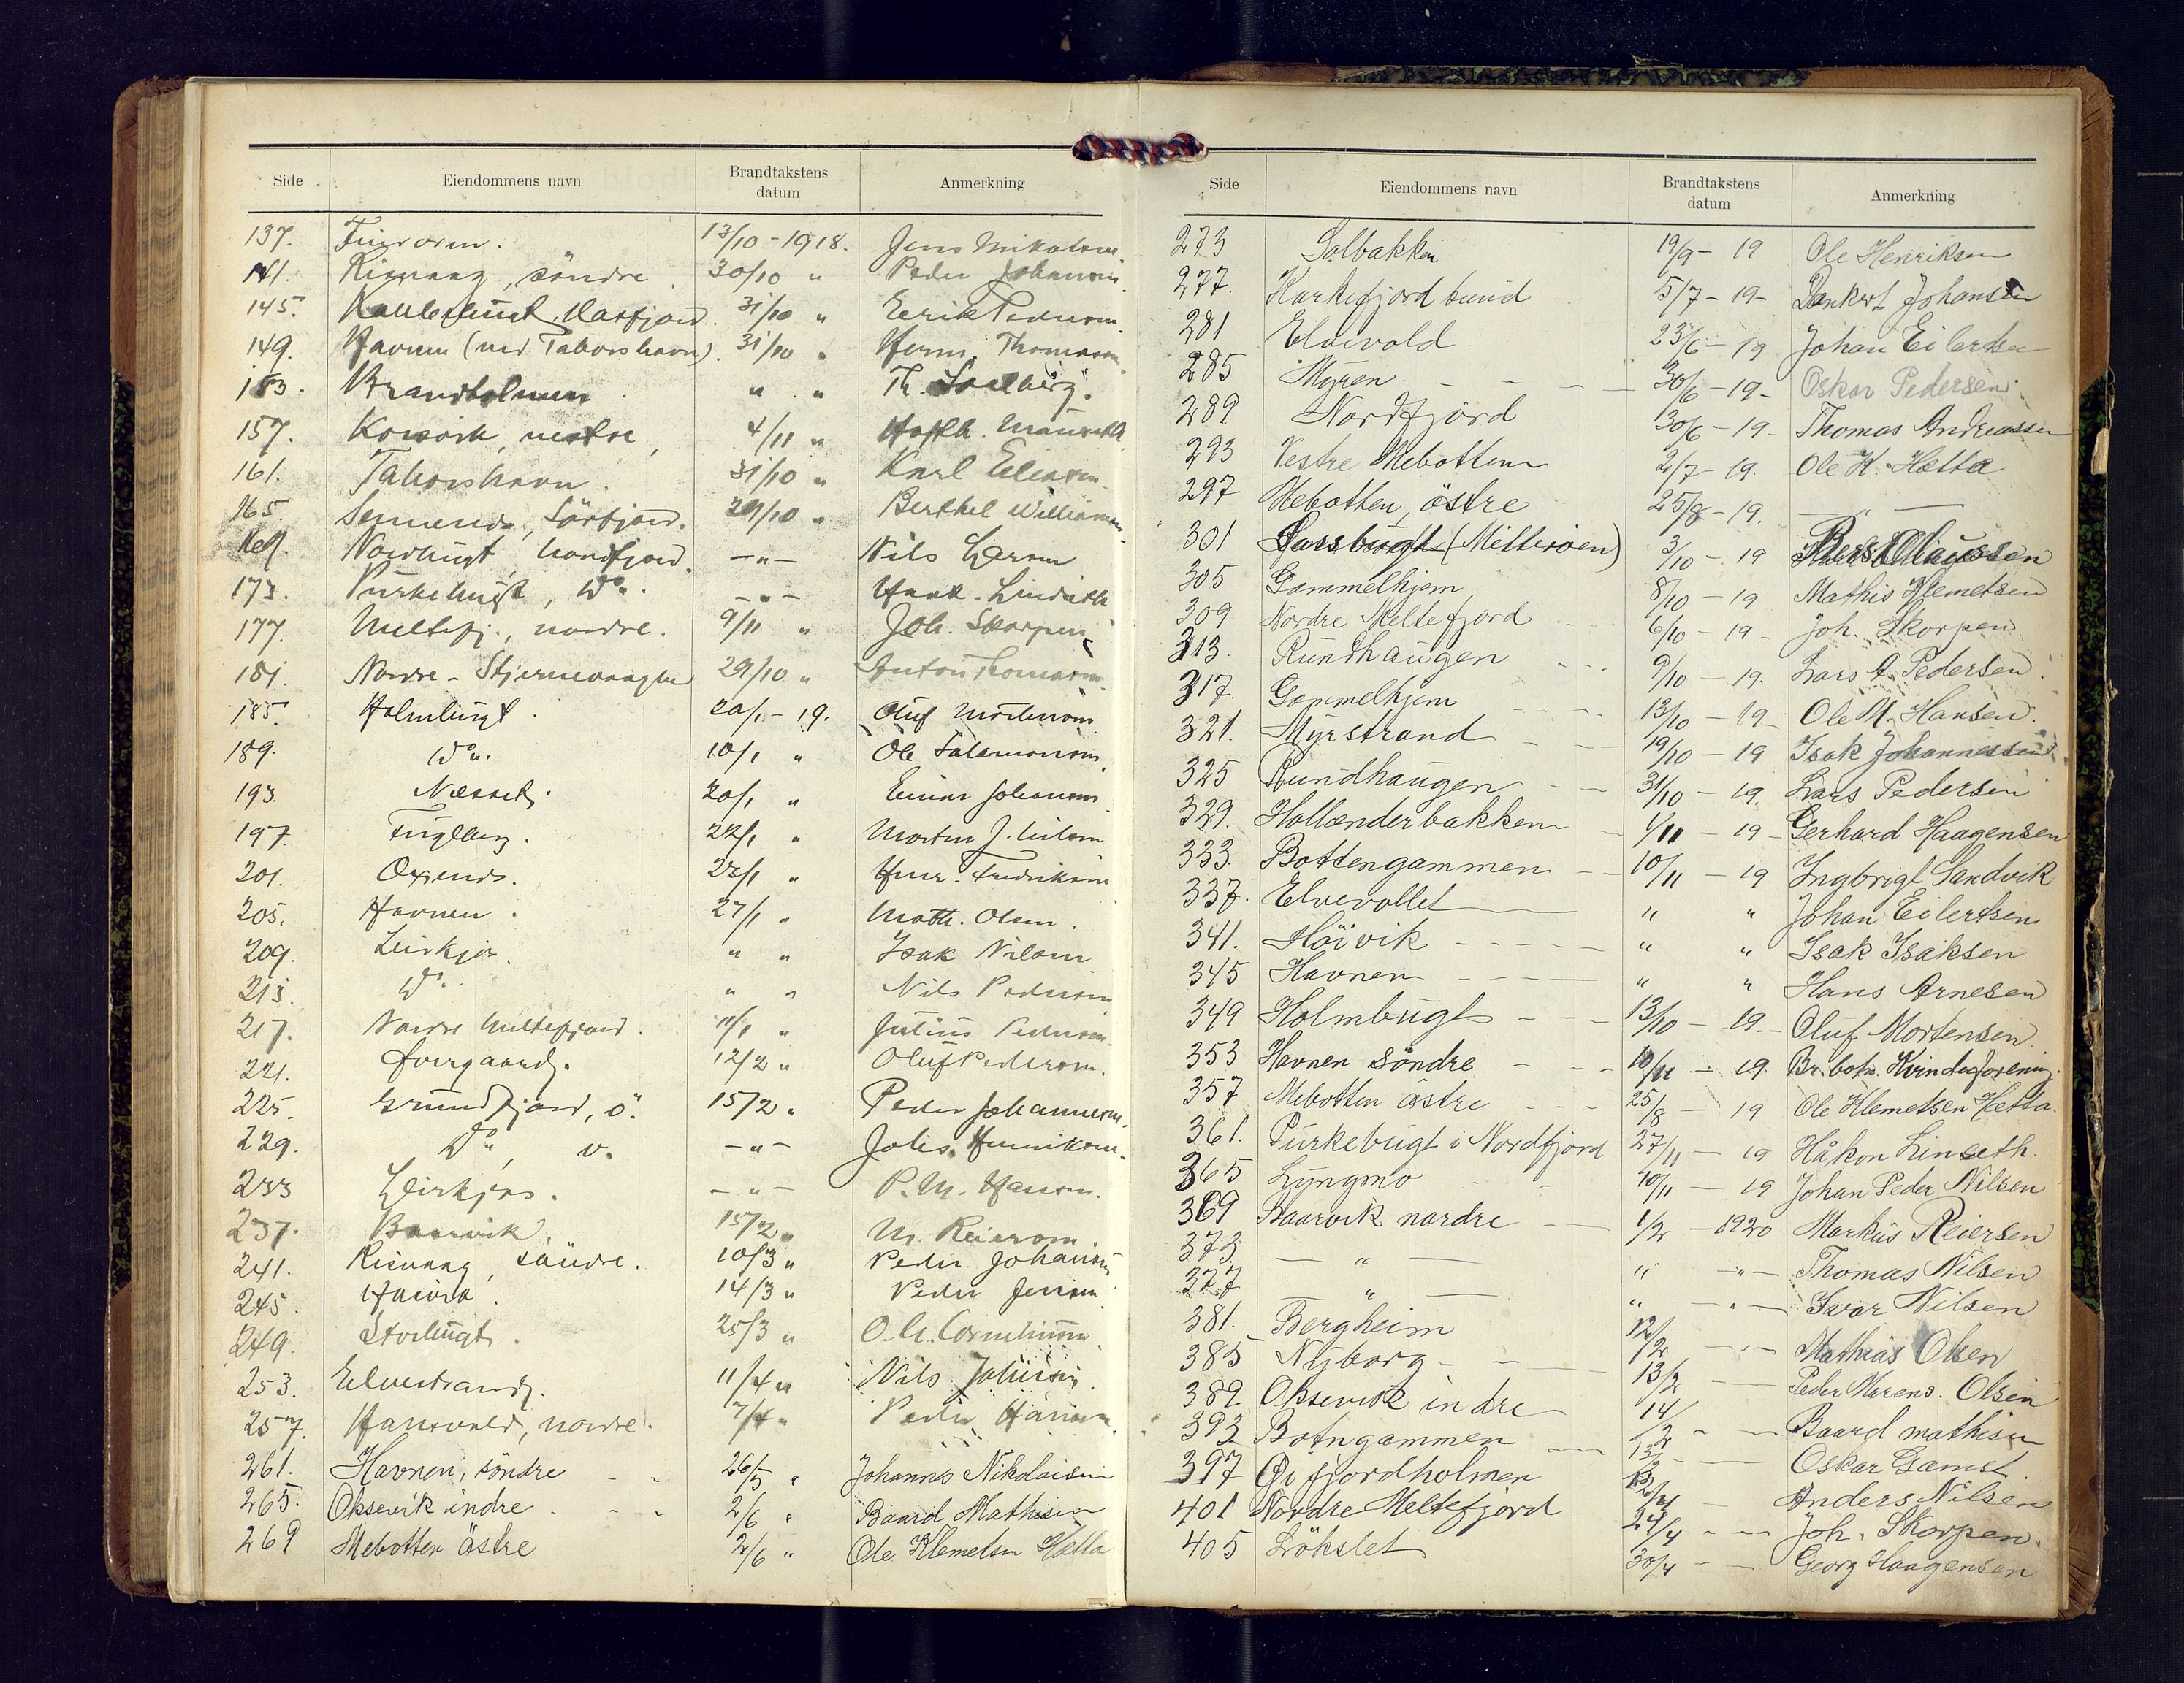 Side Eiendommens navn Brandtakstens datum Anmerkning
137. 13/10 - 1918.
141. søndre 30/10 " Peder Johansen
145. 31/10 " Erik Pedersen
149. Havnen (ved Taborshavn). 31/10 " Herm. Thomassen
153. Brandholmen " " Th. Soelberg.
157. Korsvik, vestre 4/11 "
161. Taborshavn. 31/10 " Karl
165. Sörfjord. 29/10 " Berthel
Nordfjord. — " — Nils Larsen
173. Purkebugt, Do. — " —
177. Meltefj., nordre. 9/11 " Joh. Skorpen
181. Nordre - Stjernevaagen 29/10 " Anton Thomassen
185. Holmbugt. 20/1 - 19. Oluf Mortensen
189. Do. 10/1 " Ole Salamonsen
193. Næsset. 20/1 " Einar Johansen
197. Fuglberg. 22/1 " Morten J. Nilsen
201. 23/1 " Henr. Fredriksen
205. Havnen. 27/1 " Math. Olsen.
209. " " Isak Nilsen
213. Do. " " Nils Pedersen
217. Nordre Meltefjord. 11/1 " Julius Pedersen
221. 12/2 " Oluf Pedersen.
225. Grundfjord, ö. 15/2 " Peder Johannesen.
229. Do, v. — " — Henriksen.
233 — " — P. M. Hansen.
237. Baarvik. 15/2 " M. Reiersen.
241. 10/3 " Peder Johansen
245. 14/3 " Peder Jensen
249. Storbugt. 25/3 " Corneliussen
253. Elvestrand. 11/4 " Nils
257. nordre. 7/4 " Peder Hansen
261. Havnen, söndre - - 26/5 " Johannes Nikolaisen
265. Oksevik indre - - 2/6 " Baard Mathisen
269 Mebotten östre 2/6 " Ole Klemetsen Hætta
Side Eiendommens navn Brandtakstens datum Anmerkning
273 Solbakken 19/9 - 19 Ole Henriksen
277. Karkefjordbund 5/7 - 19 - Dankert Johansen
281 Elvevold 23/6 - 19 Johan Eilertsen
285 Myren - - - 30/6 - 19 - Oskar Pedersen
289 Nordfjord 30/6 - 19 - Thomas Andreassen
293 Vestre Mebotten 2/7 - 19. Ole K. Hætta
297 Mebotten, östre 25/8 - 19. — " —
301 Larsbugt (Mellerøen) 3/10 - 19 Olaussen
305 Gammelhjem 8/10 - 19 Mathis Klemetsen
309 Nordre Meltefjord 6/10 - 19 - Joh. Skorpen
313. Rundhaugen - - - 9/10 - 19. Lars A. Pedersen.
317. Gammelhjem - - - 13/10 - 19 - Ole M. Hansen.
321. Myrstrand - - 19/10 - 19 Isak Johannessen
325 Rundhaugen - - 31/10 - 19. Lars Pedersen
329. Hollænderbakken - 1/11 - 19 - Gerhard Haagensen
333. Bottengammen - - 10/11 - 19 Ingbrigt Sandvik
337. Elvevollet — " " Johan Eilertsen
341. Höivik - - - - - " " Isak Isaksen
345 Havnen - - - " " Hans Arnesen
349 Holmbugt - - - 13/10 - 19 - Oluf Mortensen.
353 Havnen söndre - - - 10/11 - 19 Br. botn. Kvindeforening.
357 Mebotten östre - - - 25/8 - 19 Ole Klemetsen Hætta.
361. Purkebugt i Nordfjord 27/11 - 19 Håkon Linseth.
365 Lyngmo - - 10/11 - 19 Johan Peder Nilsen
369 Baarvik nordre - - 1/2 - 1920 Markus Reiersen
373 — " — " — " — Thomas Nilsen
377 — " — " — " — Ivar Nilsen
381. Bergheim 12/2 - " - Mathias Olsen
385 Nyborg - - - 13/2 — Peder Marens. Olsen
389 Oksevik indre 14/2 - — Baard Mathisen
393 Botngammen — 13/2 - — Oskar Gamst.
397 Öifjordholmen — Anders Nilsen
401 Nordre Meltefjord 24/4 - — Joh. Skorpen.
405 Løkslet 30/4 - — Georg Haagensen